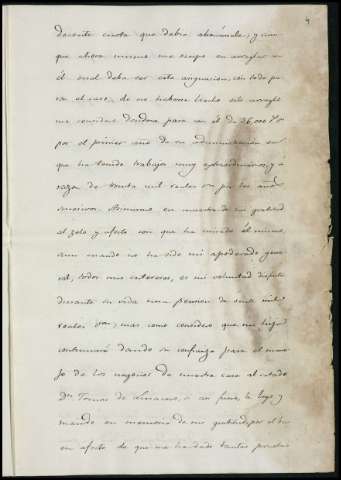 9
decorosa cuota que debia abonársele; y aun
que ahora mismo me ocupo en arreglar con
él cual deba ser esta asignacion, con todo pa
ra el caso de no haberse hecho este arreglo
me considero deudora para con él de 36.000 rs
por el primer año de su administracion en
que ha tenido trabajos muy extraordinarios, y á
razon de treinta mil reales vn por los años
sucesivos. Asimismo en muestra de mi gratitud
al zelo y afecto con que ha mirado el mismo,
aun cuando no ha sido mi apoderado gene
ral, todos mis intereses, es mi voluntad disfrute
durante su vida una pension de mil
reales vn; mas como considero que mi hijo
continuará dando su confianza para el mane
jo de los negocios de nuestra casa al citado
Dn. Tomas de si asi fuere, le lego y
mando en memoria de mi gratitud por el
afecto de que me ha dado tantas pruebas